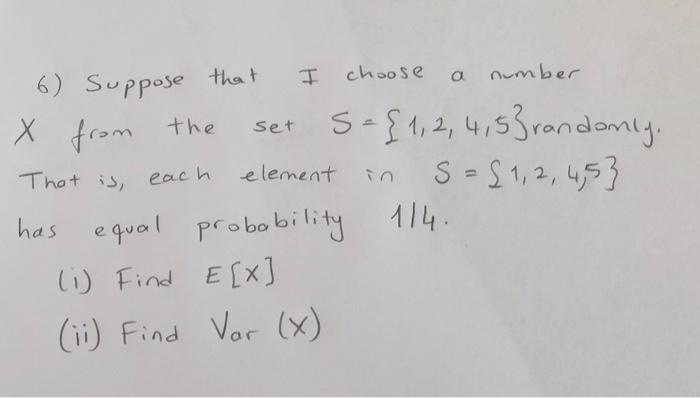 6) Suppose that I choose a number
X from the set S = {1, 2, 4, 5} randomly.
That is, each element in S = {1, 2, 4, 5}
has equal probability 1/4.
(i) Find E[X]
(ii) Find Var (X)